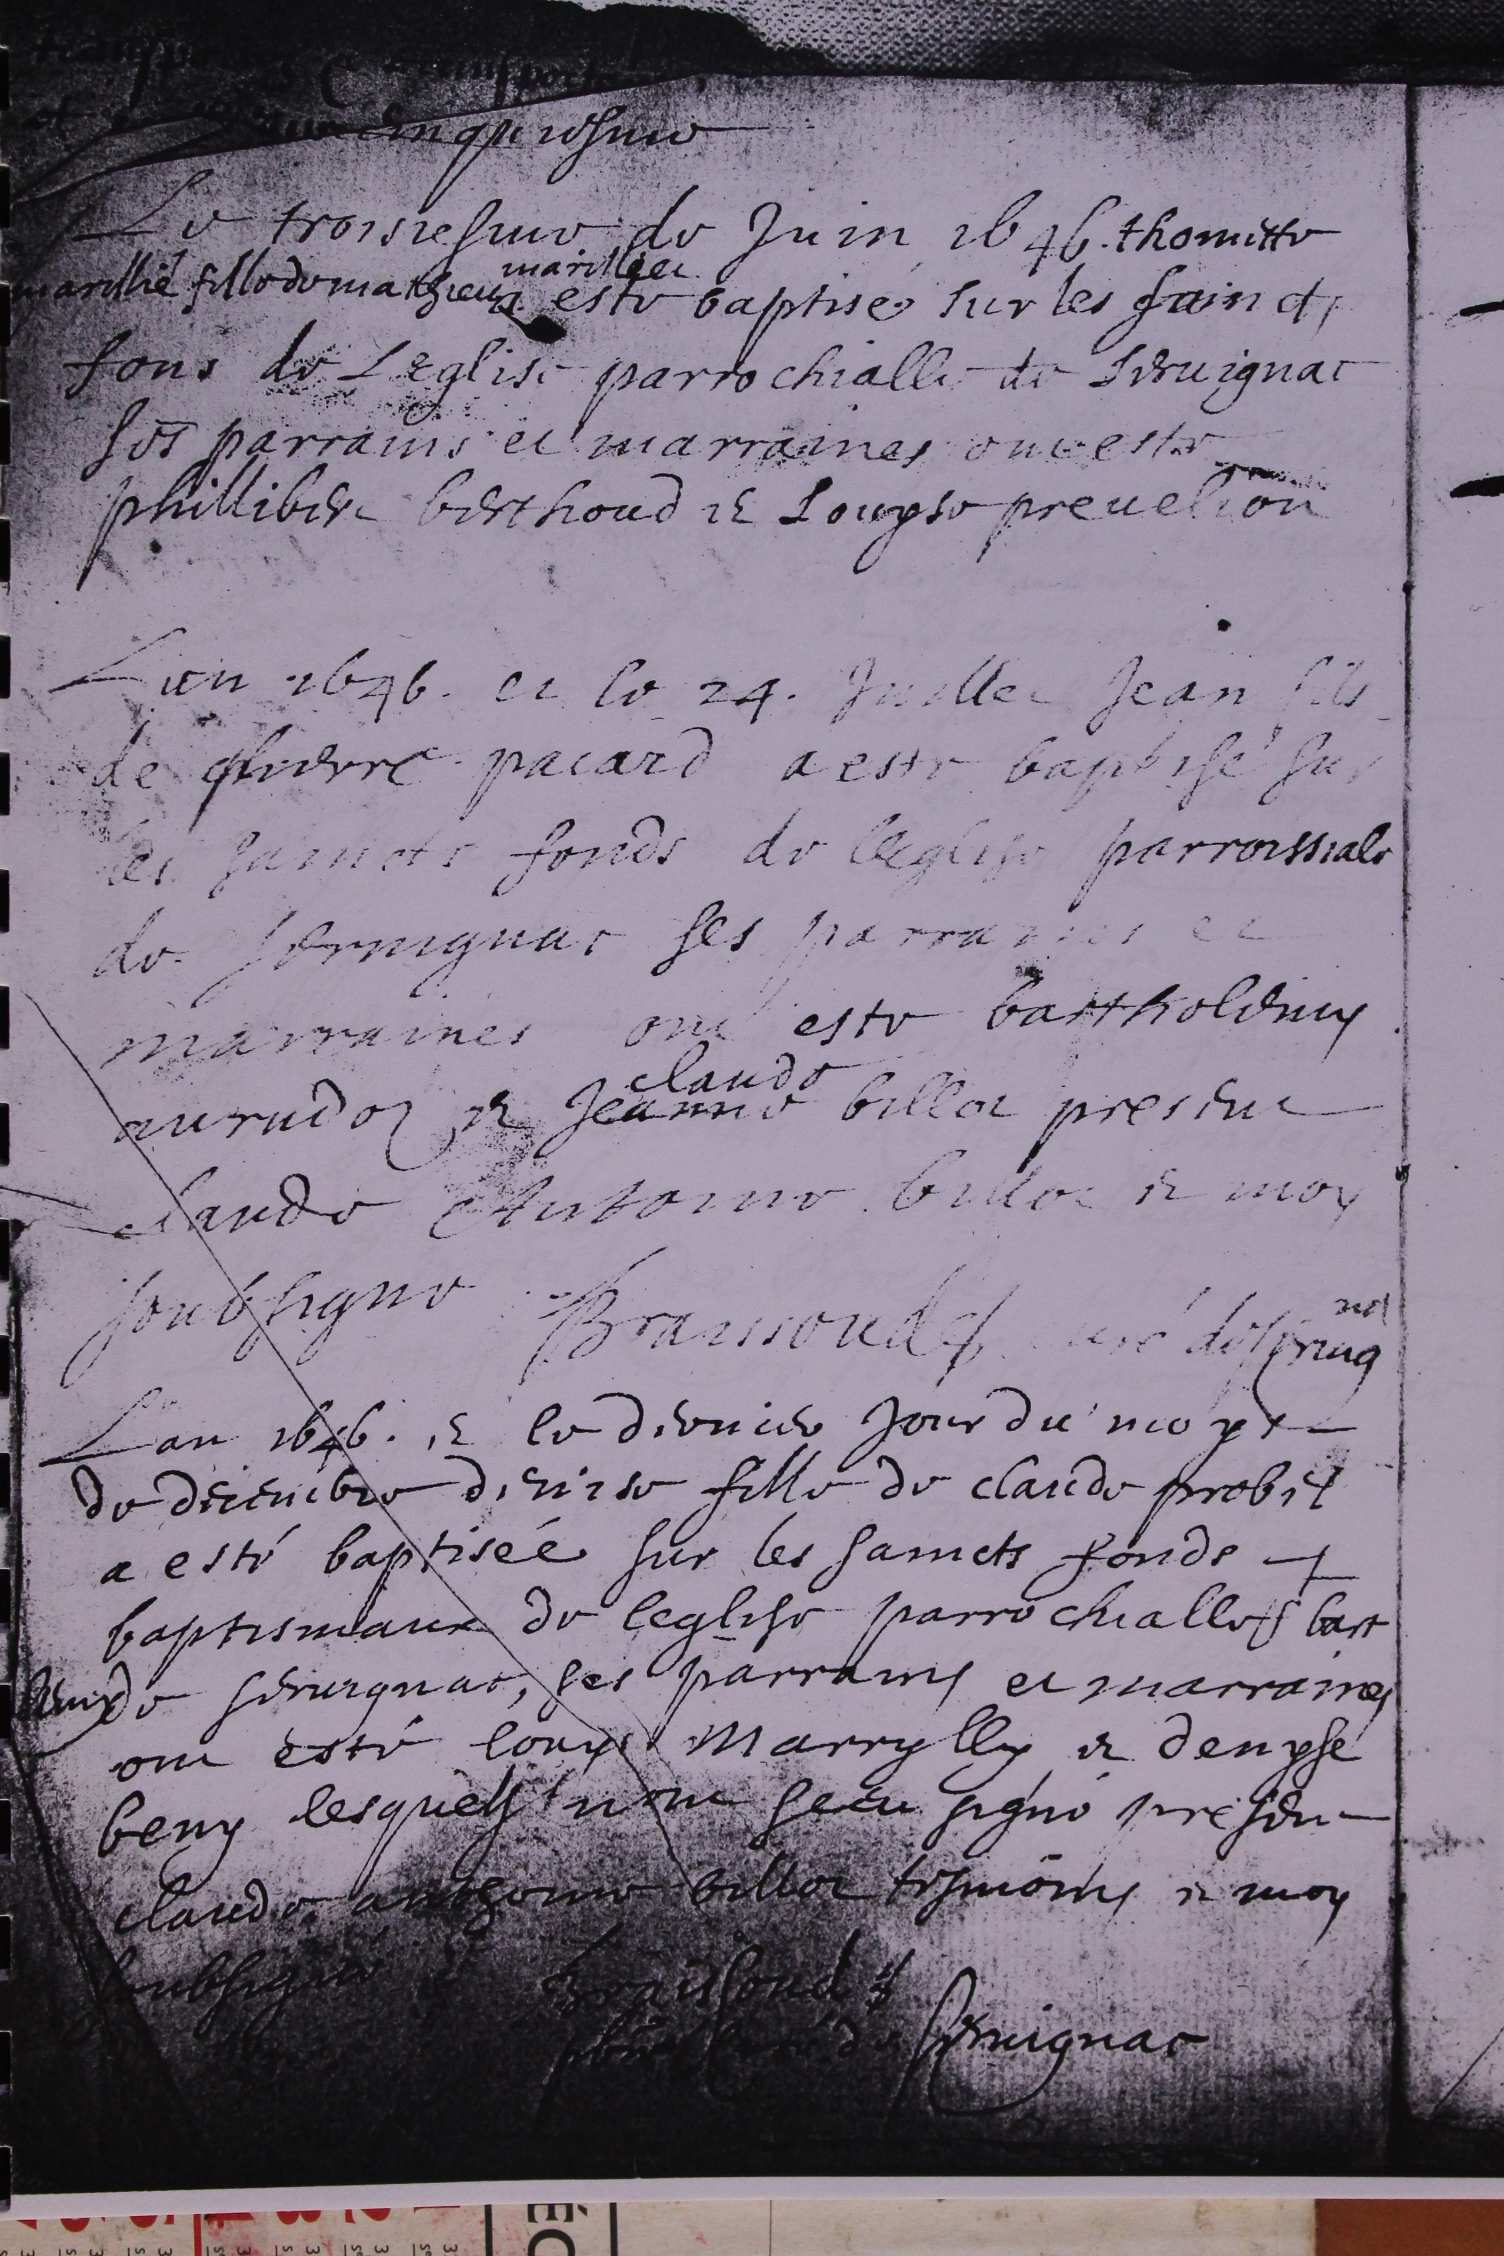 cinquiesme
Le troisiesme de Juin 1646. thomette
marillié fille de mathieu marillier a este baptisé sur les sainct
fons de L'eglise parrochialle de Servignac
ses parrains et marraines ont este
phillibert berthoud et Louyse prevelion
L'an 1646. et le 24. Juillet Jean fils
de pierre pacard a este baptisé sur
les saincts fonds de leglise parroissiale
de Servignac ses parrains et
marraines ont este bartholemy
et Jeanne claude billot present
claude Anthoine billot et moy
soubsigne curé de Servignac
Lan 1646. et le dernier Jour du moys
de decembre denise fille de claude probst
a esté baptisée sur les saincts fonds
baptismaux de leglise parrochialle
de Servignac, ses parrains et marraines
ont esté louys Marrylly et denyse
beny lesquels nont sceu signé present
claude anthoine billot tesmoins et moy
soubsigné
curé de Servignac